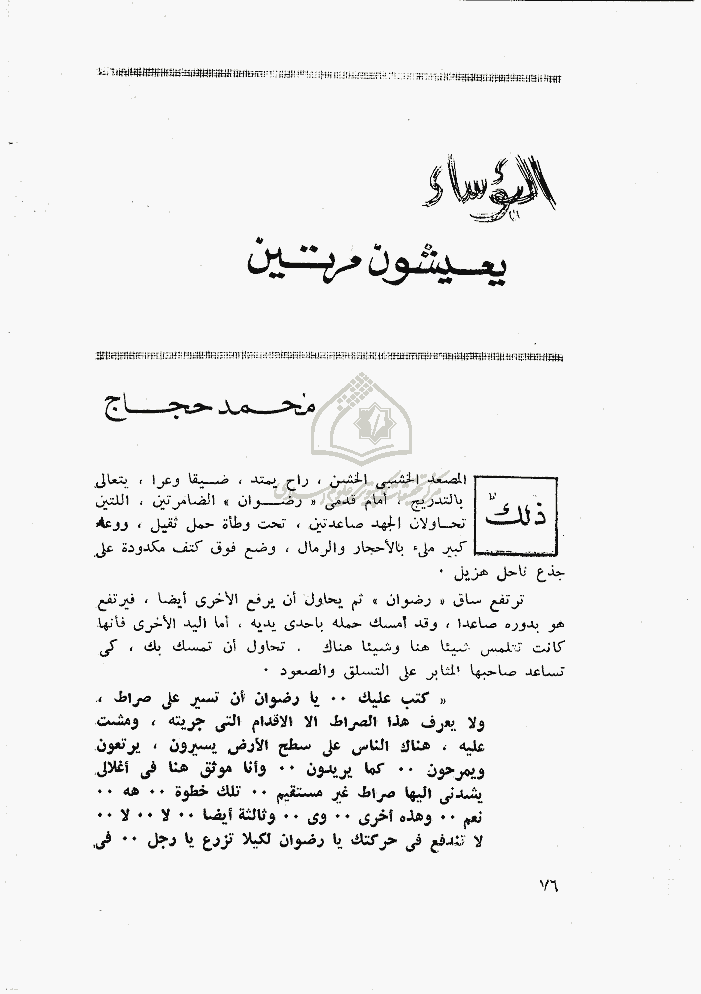 البؤساء
يعيشون مرتين
محمد حجاج
ذلك
المصعد الخشبي الخشن ، راح يمتد ، ضيقا وعرا ، يتعالى
بالتدريج ، أمام قدمى « رضوان » الضامرتين ، اللتين
تحاولان الجهد صاعدتين ، تحت وطأة حمل ثقيل ، ووعاء
كبير ملىء بالأحجار والرمال ، وضع فوق كتف مكدودة على
جذع ناحل هزيل ٠
ترتفع ساق « رضوان » ثم يحاول أن يرفع الأخرى أيضا ، فيرتفع
هو بدوره صاعدا ، وقد أمسك حمله باحدى يديه ، أما اليد الأخرى فأنها
كانت تتلمس شيئا هنا وشيئا هناك . تحاول أن تمسك بك ، كى
تساعد صاحبها المثابر على التسلق والصعود ٠
« كتب عليك ٠٠ يا رضوان أن تسير على صراط ،
ولا يعرف هذا الصراط الا الاقدام التى جربته ، ومشت
عليه ، هناك الناس على سطح الأرض يسيرون ، يرتعون
ويمرحون ٠٠ كما يريدون ٠٠ وأنا موثق هنا فى أغلال
يشدنى اليها صراط غير مستقيم ٠٠ تلك خطوة ٠٠ هه ٠٠
نعم ٠٠ وهذه أخرى ٠٠ وى ٠٠ وثالثة أيضا ٠٠ لا ٠٠ لا ٠٠
لا تندفع فى حركتك يا رضوان لكيلا تزرع يا رجل ٠٠ فى
٧٦